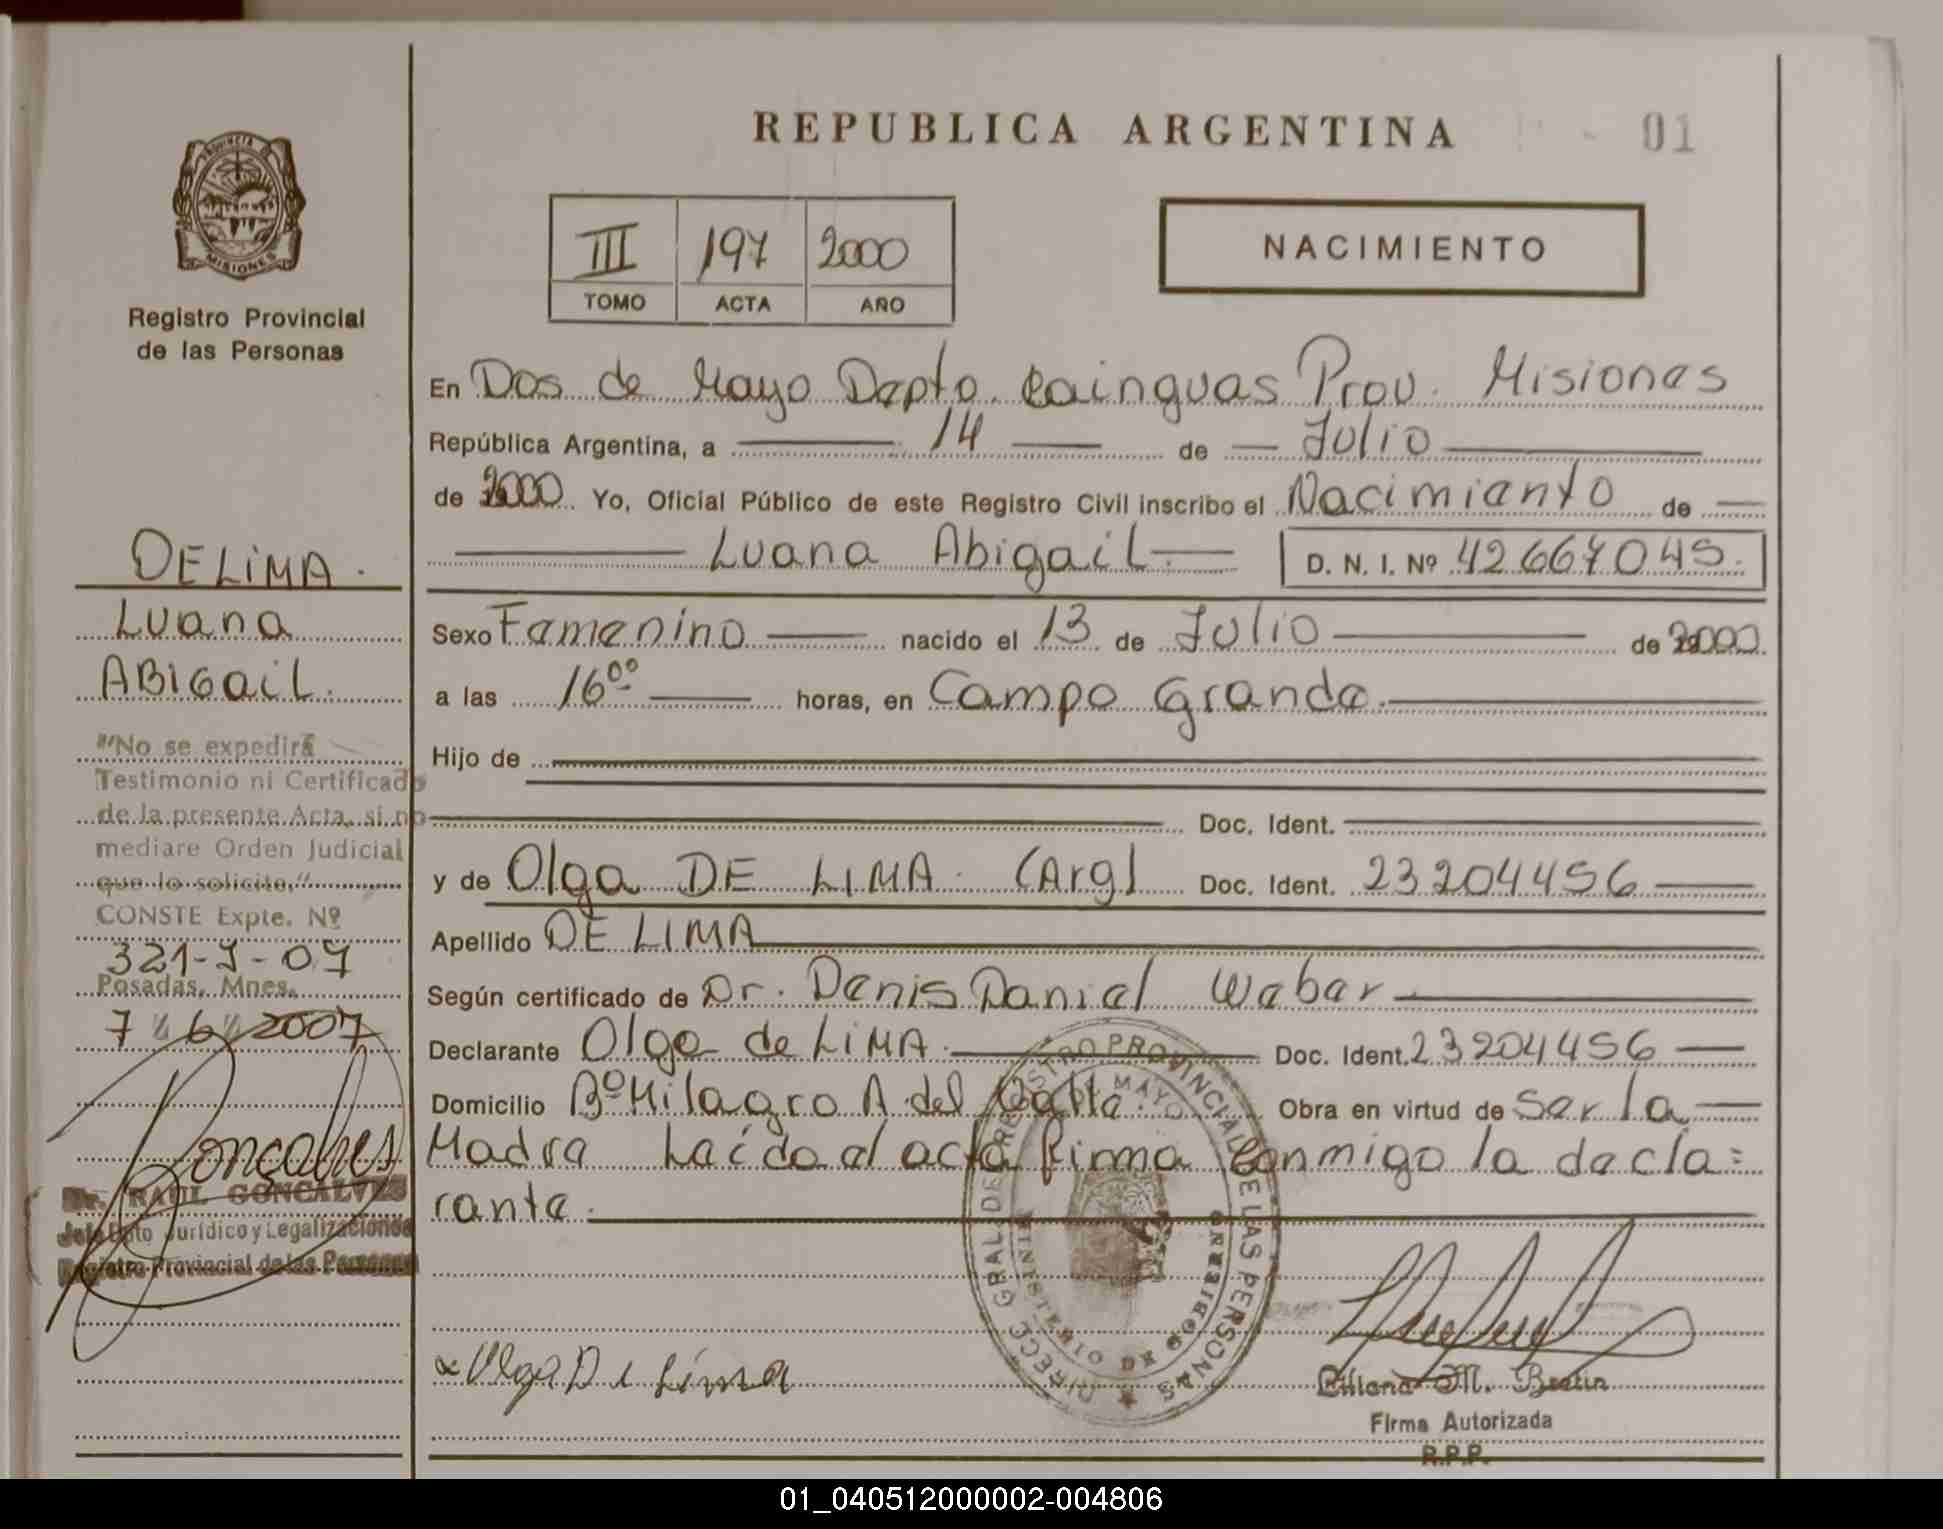 REPUBLICA ARGENTINA
01
PROVINCIA DE
MISIONES
Registro Provincial
de las Personas
III 197 2000
TOMO ACTA AÑO
NACIMIENTO
DE LiMA.
Luana
ABIGaiL.
"No se expedirá
Testimonio ni Certificado
de la presente Acta, si no
mediare Orden Judicial
que lo solicite."
CONSTE Expte. Nº
321-J-07
Posadas, Mnes.
7 6 2007
Goncalves
Dr. RAUL GONCALVES
Jefe Dpto Jurídico y Legalizaciones
Registro Provincial de las Personas
En Dos de Mayo Depto. Cainguas Prov. Misiones
República Argentina, a 14 de Julio
de 2000 Yo, Oficial Público de este Registro Civil inscribo el Nacimiento de
Luana Abigail D. N. I. Nº 42667045.
Sexo Femenino nacido el 13 de Julio de 2000
a las 16⁰⁰ horas, en Campo Grande.
Hijo de
Doc. Ident.
y de Olga DE LIMA. (Arg) Doc. Ident. 23204456
Apellido DE LIMA
Según certificado de Dr. Denis Daniel Weber
Declarante Olga de LiMA. Doc. Ident. 23204456
Domicilio Bº Milagro A. del Valle. Obra en virtud de ser la
Madre Leída el acta firma conmigo la decla=
rante.
DIRECC. GRAL. DE REGISTRO PROVINCIAL DE LAS PERSONAS
MAYO
MINISTERIO DE GOBIERNO
Olga De Lima
Liliana M. Bretin
Firma Autorizada
R.P.P.
01_040512000002-004806